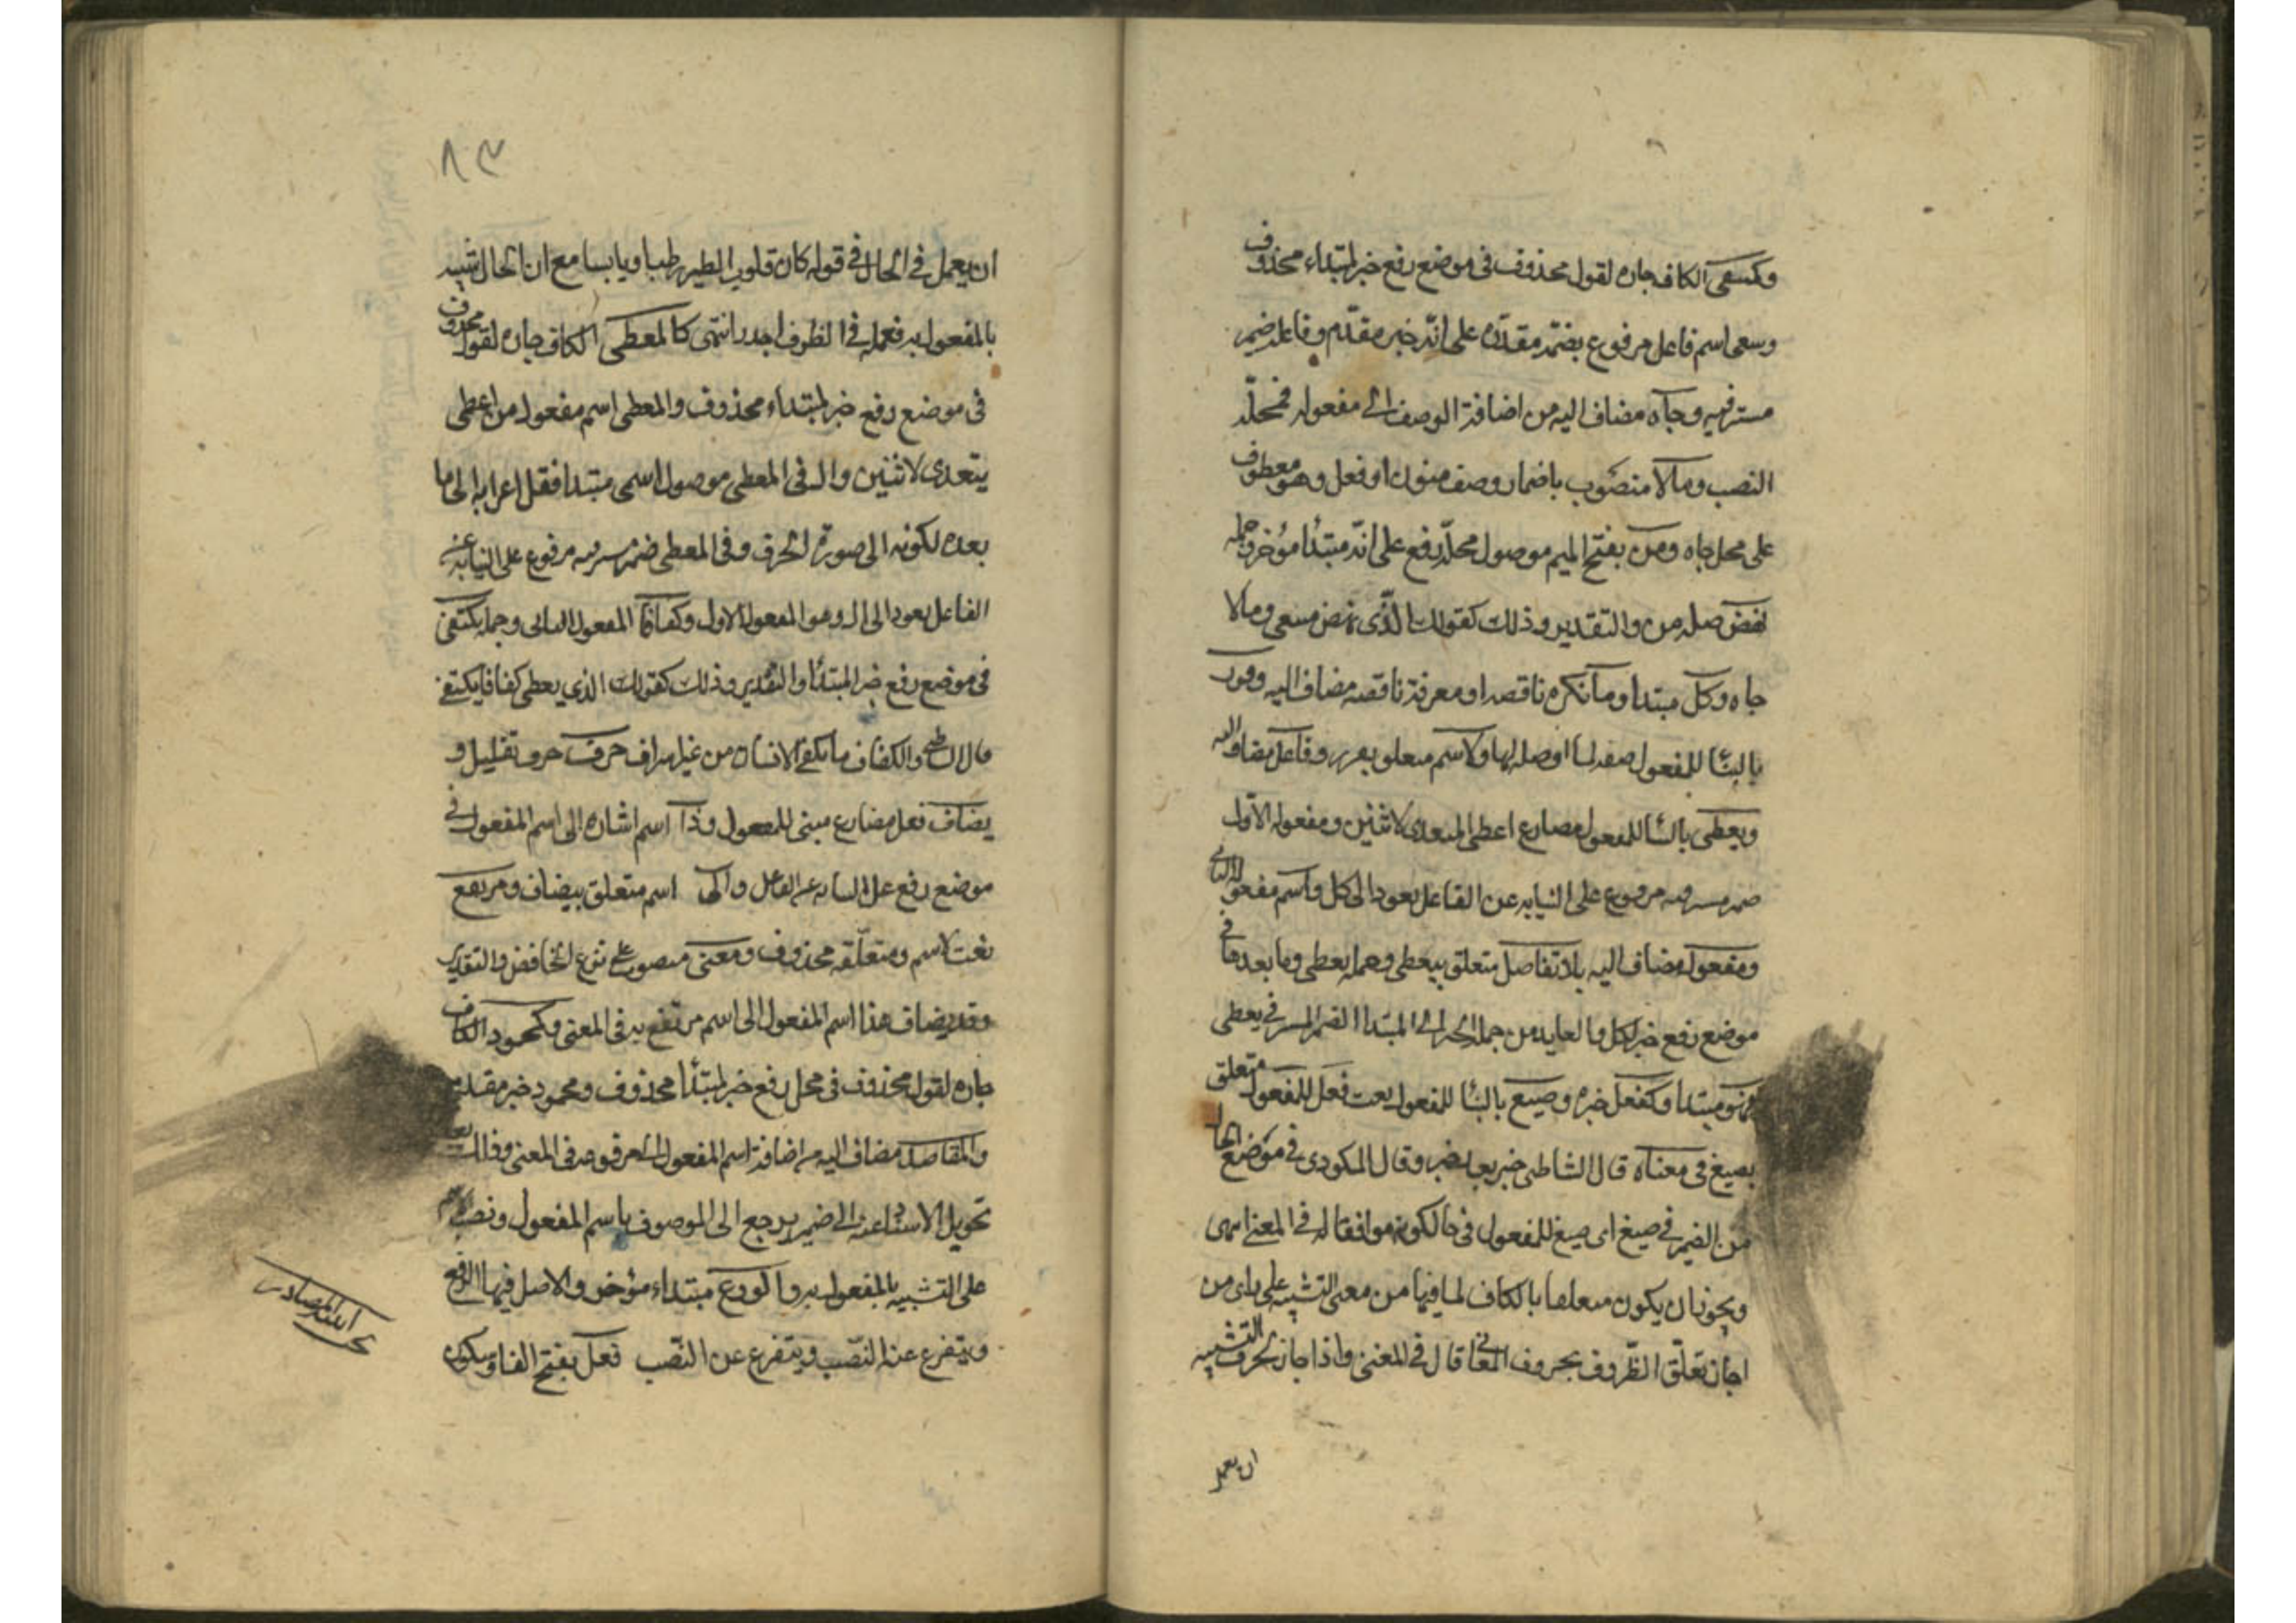 وكمسعى الكاف جاره لقول محذوف فى موضع رفع خبر لمبتداء محذوف
وسعى اسم فاعل مرفوع بضمة مقدره على انه خبر مقدم وفاعله ضمير
مستتر فيه وجاه مضاف اليه من اضافة الوصف الى مفعوله فمحله
النصب ومالا منصوب باضمار وصف منون او فعل وهو معطوف
على محل جاه ومن بفتح الميم موصول محله رفع على انه مبتدأ مؤخر وجمله
نهض صله من والتقدير وذلك كقولك الذى نهض مسعى ومالا
جاه وكل مبتدأ وما نكره ناقصه او معرفة ناقصه مضاف اليه وقرر
بالبنا للمفعول صفه لما اوصله لها ولاسم متعلق بقرر وفاعل مضاف اليه
ويعطى بالبنا للمفعول مضارع اعطى المتعدى لاثنين ومفعوله الاول
ضمير مستتر فيه مرفوع على النيابه عن الفاعل يعود الى كل واسم مفعوله الثانى
ومفعول مضاف اليه بلا تفاضل متعلق بيعطى وجمله يعطى وما بعدها فى
موضع رفع خبر لكل والعايد من جملة الخبر الى المبتدا الضمير المستتر فى يعطى
فهو مبتدا وكفعل خبره وصيغ بالبنا للمفعول نعت فعل للمفعول متعلق
بصيغ فى معناه قال الشاطبى خبر بعد خبر وقال المكودى فى موضع الحال
من الضمير فى صيغ اى صيغ للمفعول فى حال كونه موافقا له فى المعنى انتهى
ويجوز ان يكون متعلقا بالكاف لما فيها من معنى التشبيه على راى من
اجاز تعلق الظروف بحروف المعانى قال فى المغنى واذا جاز لحرف التشبيه
ان يعمل
٨٣
ان يعمل فى الحال فى قوله كان قلوب الطير رطبا ويابسا مع ان الحال شبيه
بالمفعول به فعمله فى الظرف اجدر انتهى كالمعطى الكاف جاره لقول محذوف
فى موضع رفع خبر لمبتداء محذوف والمعطى اسم مفعول من اعطى
يتعدى لاثنين وال فى المعطى موصول اسمى مبتدا فنقل اعرابه الى ما
بعده لكونه الى صورة الحرف وفى المعطى ضمير مستتر فيه مرفوع على النيابة عن
الفاعل يعود الى ال وهو المفعول الاول وكفافا المفعول الثانى وجمله يكتفى
فى موضع رفع خبر المبتدأ والتقدير وذلك كقولك الذي يعطى كفافا يكتفى
قال الشاطبى والكفاف ما يكفى الانسان من غير اسراف حرف حرف تقليل و
يضاف فعل مضارع مبنى للمفعول وذا اسم اشاره الى اسم المفعول فى
موضع رفع على النيابه عن الفاعل والى اسم متعلق بيضاف ومرتفع
نعت لاسم ومتعلقه محذوف ومعنى منصوب على نزع الخافض والتقدير
وقد يضاف هذا اسم المفعول الى اسم مرتفع به فى المعنى وكمحمود الكاف
جاره لقول محذوف فى محل رفع خبر لمبتدأ محذوف ومحمود خبر مقدم
والمقاصد مضاف اليه من اضافة اسم المفعول الى مرفوعه فى المعنى وذلك بعد
تحويل الاسناد عنه الى ضمير يرجع الى الموصوف باسم المفعول ونصب الاسم
على التشبيه بالمفعول به والورع مبتداء مؤخر والاصل فيها الرفع
ويتفرع عنه النصب ويتفرع عن النصب فعل بفتح الفا وسكون
ابنية المصادر